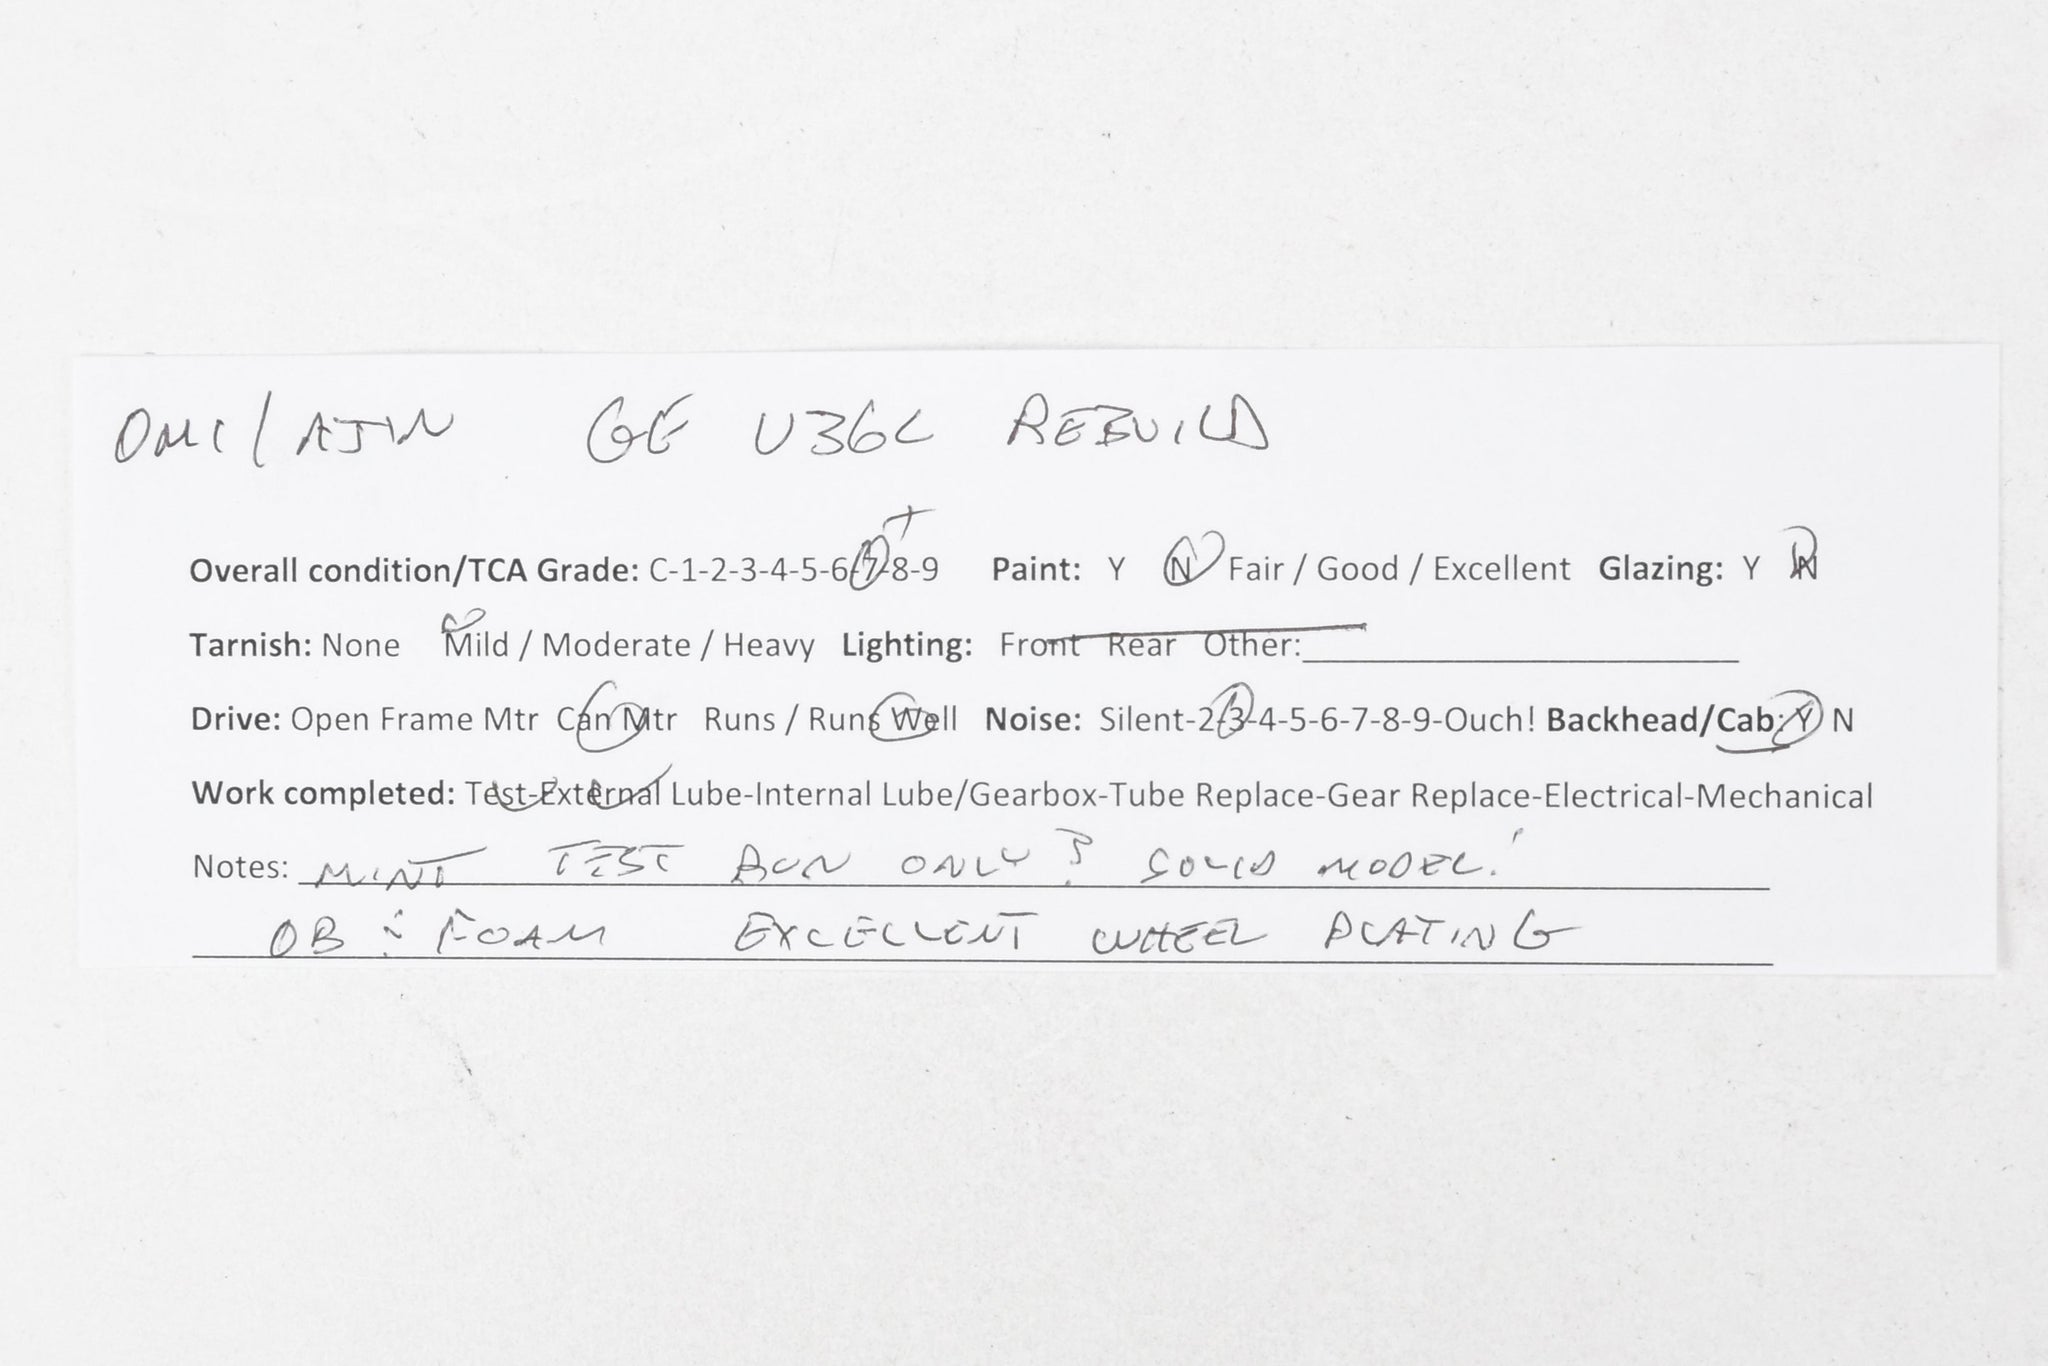 OMI/AJIN GE U36C REBUILD
+
Overall condition/TCA Grade: C-1-2-3-4-5-6-7-8-9 Paint: Y N Fair / Good / Excellent Glazing: Y N
Tarnish: None Mild / Moderate / Heavy Lighting: Front Rear Other:
Drive: Open Frame Mtr Can Mtr Runs / Runs Well Noise: Silent-2-3-4-5-6-7-8-9-Ouch! Backhead/Cab: Y N
Work completed: Test-External Lube-Internal Lube/Gearbox-Tube Replace-Gear Replace-Electrical-Mechanical
Notes: MINT TEST RUN ONLY? SOLID MODEL!
OB & FOAM EXCELLENT WHEEL PLATING